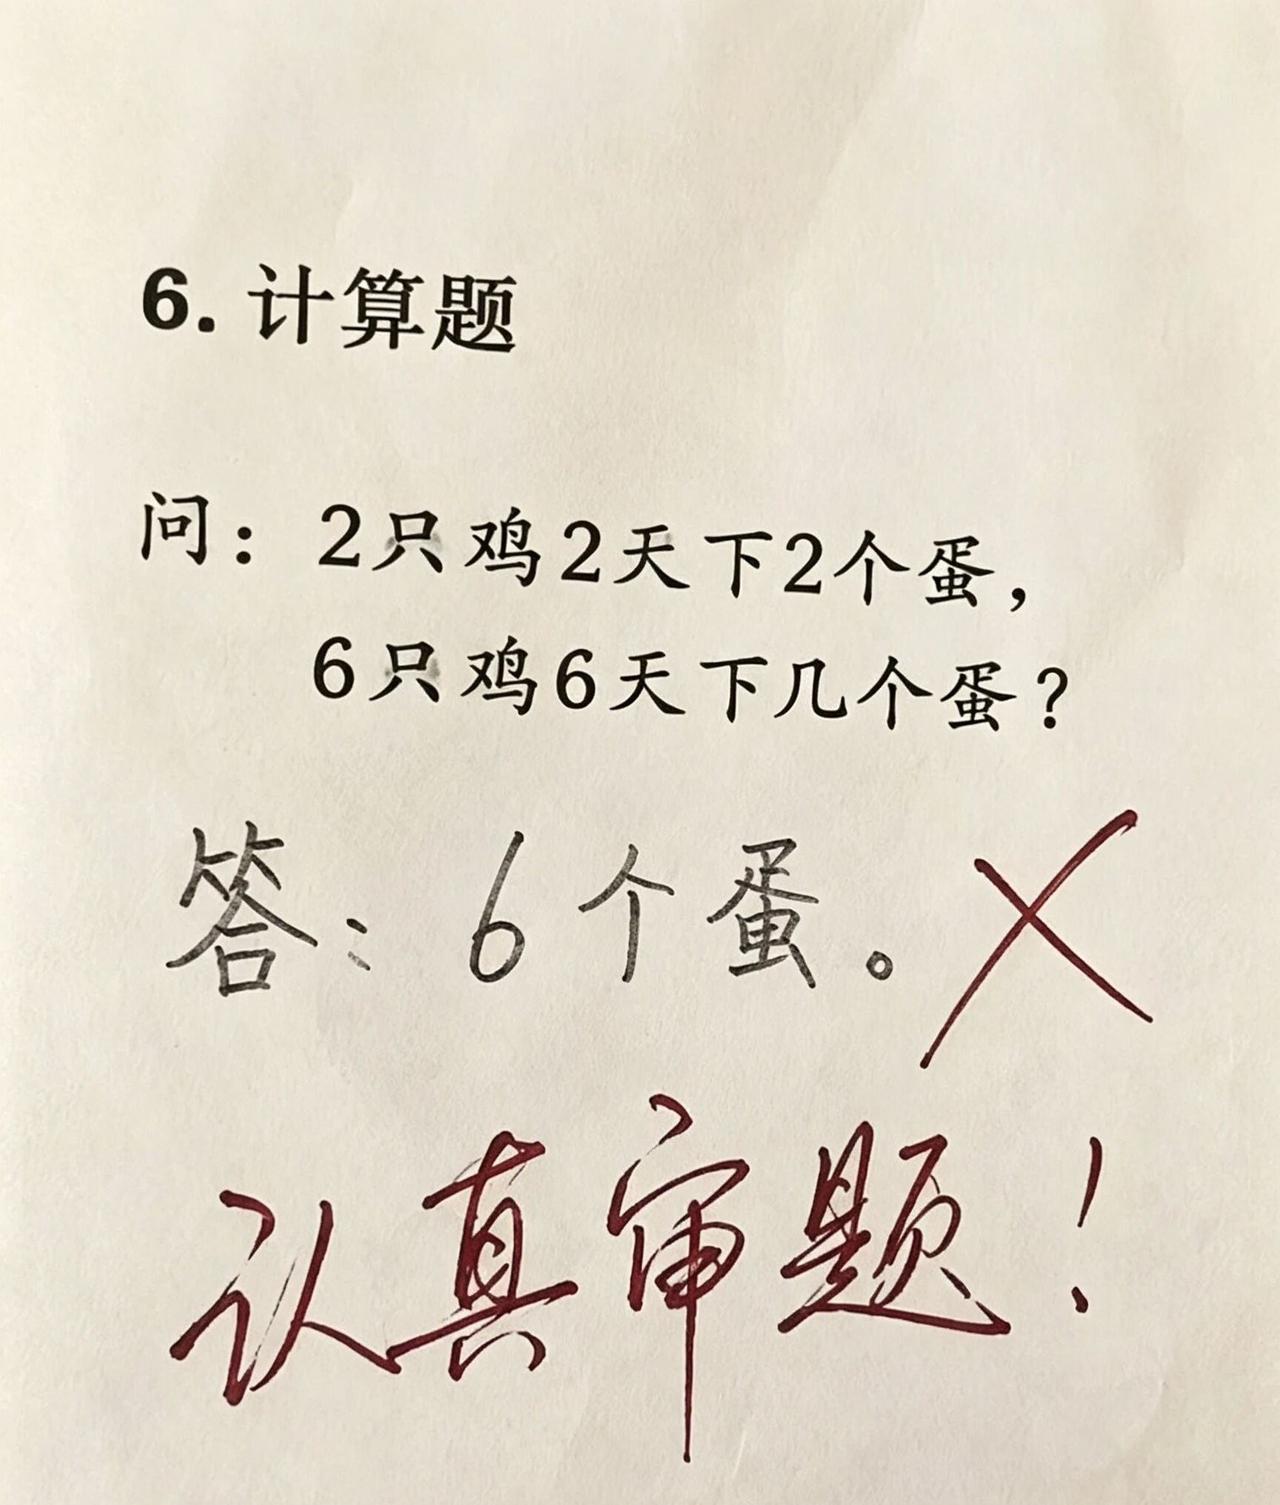 6. 计算题
问：2只鸡2天下2个蛋，
6只鸡6天下几个蛋？
答：6个蛋。
认真审题！